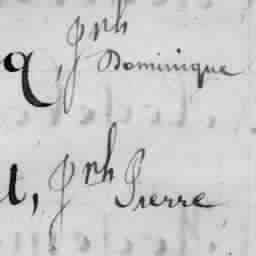 q, Jph Dominique
t, Jph Pierre